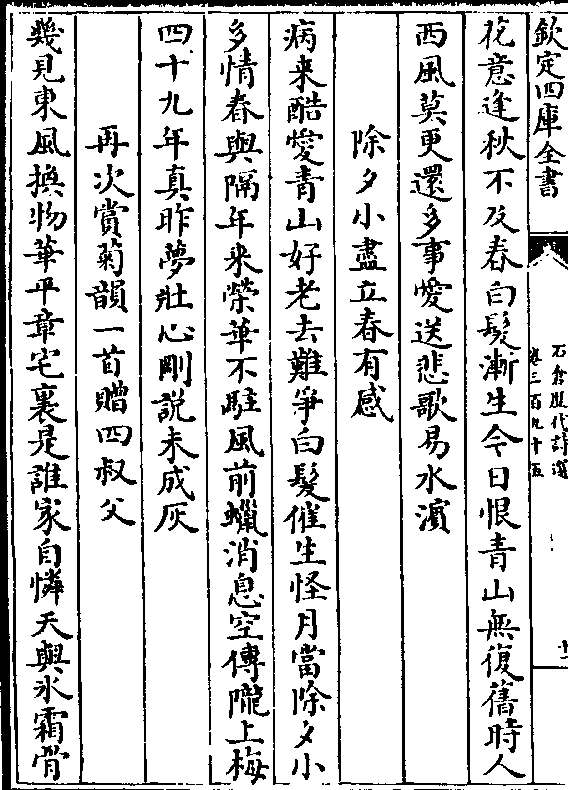 欽定四庫全書
石倉歷代詩選
卷三百九十五
花意逢秋不及春白髮漸生今日恨青山無復舊時人
西風莫更還多事愛送悲歌易水濱
除夕小盡立春有感
病来酷愛青山好老去難爭白髮催生怪月當除夕小
多情春與隔年来榮華不駐風前蠟消息空傳隴上梅
四十九年真昨夢壯心剛說未成灰
再次賞菊韻一首贈四叔父
幾見東風換物華平章宅裏是誰家自憐天與氷霜骨